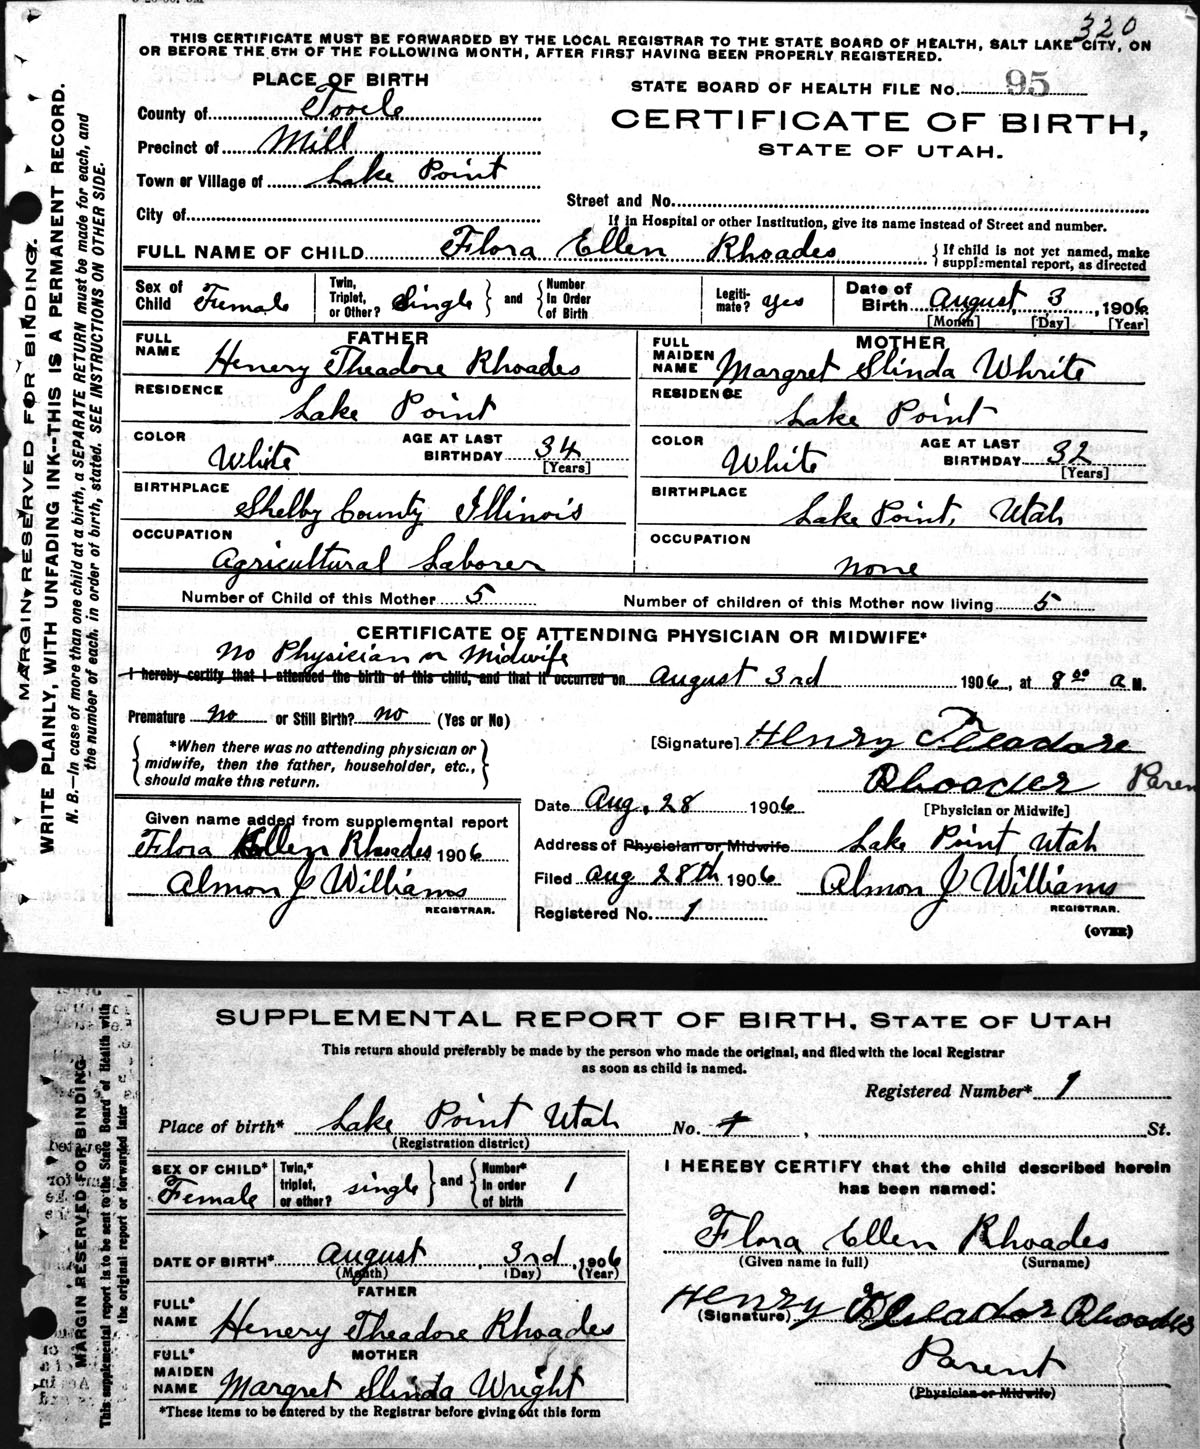 320
THIS CERTIFICATE MUST BE FORWARDED BY THE LOCAL REGISTRAR TO THE STATE BOARD OF HEALTH, SALT LAKE CITY, ON
OR BEFORE THE 5TH OF THE FOLLOWING MONTH, AFTER FIRST HAVING BEEN PROPERLY REGISTERED.
PLACE OF BIRTH
STATE BOARD OF HEALTH FILE No. 95
County of Tooele
CERTIFICATE OF BIRTH,
Precinct of Mill
STATE OF UTAH.
Town or Village of Lake Point
Street and No.
City of
If in Hospital or other Institution, give its name instead of Street and number.
FULL NAME OF CHILD Flora Ellen Rhoades { If child is not yet named, make
supplemental report, as directed
Sex of Child Female Twin, Triplet, or Other? Single } and { Number In Order of Birth Legiti-mate? yes Date of Birth August, 3, 1906
[Month] [Day] [Year]
FATHER MOTHER
FULL NAME Henery Theadore Rhoades FULL MAIDEN NAME Margret Slinda Whrite
RESIDENCE Lake Point RESIDENCE Lake Point
COLOR White AGE AT LAST BIRTHDAY 34 [Years] COLOR White AGE AT LAST BIRTHDAY 32 [Years]
BIRTHPLACE Shelby County Illinois BIRTHPLACE Lake Point, Utah
OCCUPATION Agricultural Laborer OCCUPATION none
Number of Child of this Mother 5 Number of children of this Mother now living 5
CERTIFICATE OF ATTENDING PHYSICIAN OR MIDWIFE*
No Physician or Midwife
I hereby certify that I attended the birth of this child, and that it occurred on August 3rd 1906, at 8 00 a M.
Premature no or Still Birth? no (Yes or No)
[Signature] Henry Theadore
Rhoades Paren
[Physician or Midwife]
{ *When there was no attending physician or
midwife, then the father, householder, etc.,
should make this return. }
Date Aug. 28 1906
Given name added from supplemental report
Flora Ellen Rhoades 1906
Almon J Williams
REGISTRAR.
Address of Physician or Midwife Lake Point Utah
Filed Aug 28th 1906 Almon J Williams
REGISTRAR.
Registered No. 1
(OVER)
MARGIN RESERVED FOR BINDING.
WRITE PLAINLY, WITH UNFADING INK--THIS IS A PERMANENT RECORD.
N. B.—In case of more than one child at a birth, a SEPARATE RETURN must be made for each, and
the number of each, in order of birth, stated. SEE INSTRUCTIONS ON OTHER SIDE.
SUPPLEMENTAL REPORT OF BIRTH, STATE OF UTAH
This return should preferably be made by the person who made the original, and filed with the local Registrar
as soon as child is named.
Registered Number* 1
Place of birth* Lake Point Utah No. 1, St.
(Registration district)
SEX OF CHILD* Female Twin,* triplet, or other? single } and { Number* In order of birth 1
DATE OF BIRTH* August 3rd, 1906
(Month) (Day) (Year)
FATHER
FULL* NAME Henery Theadore Rhoades
MOTHER
FULL* MAIDEN NAME Margret Slinda Wright
*These items to be entered by the Registrar before giving out this form
I HEREBY CERTIFY that the child described herein
has been named:
Flora Ellen Rhoades
(Given name in full) (Surname)
Henry Theador Rhoades
(Signature)
Parent
(Physician or Midwife)
MARGIN RESERVED FOR BINDING
This supplemental report is to be sent to the State Board of Health with
the original report or forwarded later